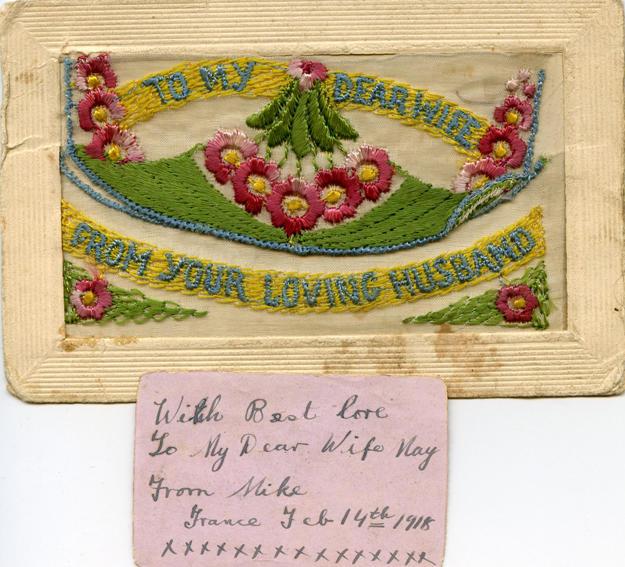 TO MY DEAR WIFE
FROM YOUR LOVING HUSBAND
With Best love
To My Dear Wife May
From Mike
France Feb 14th 1918
xxxxxxxxxxxxxxx